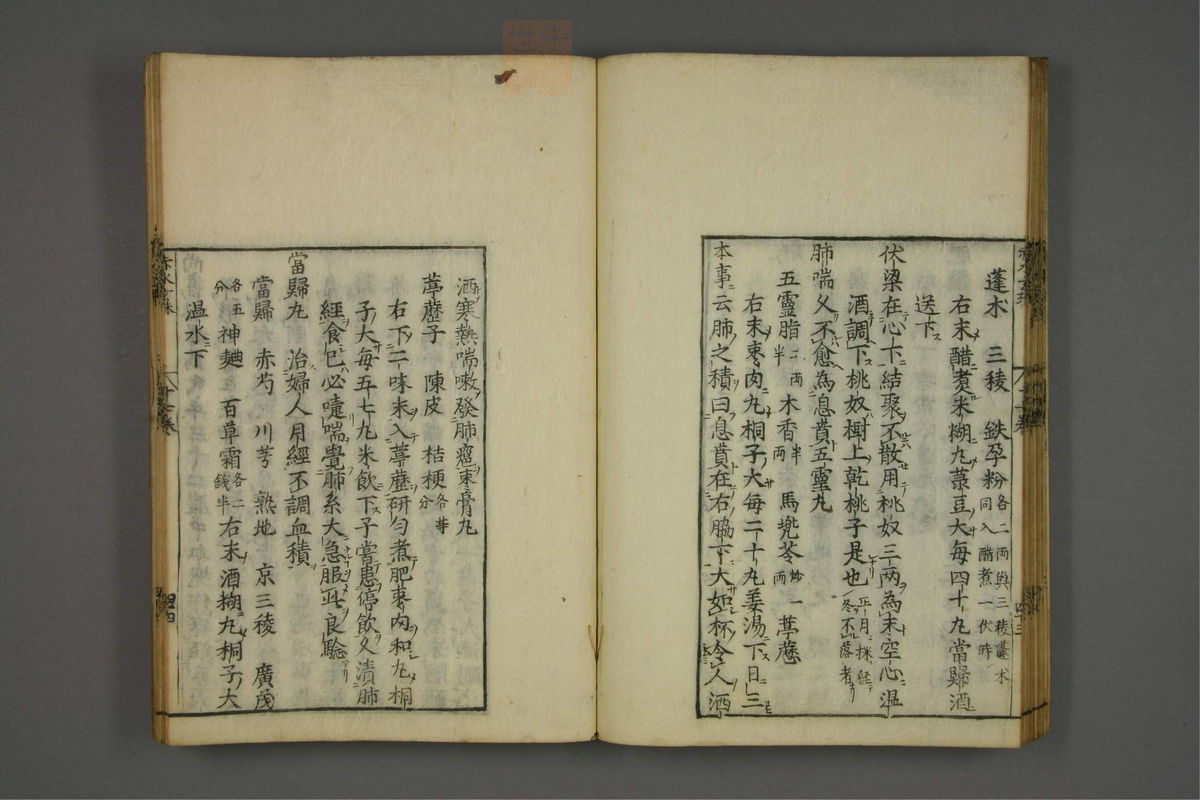 蓬朮　三稜　鉄孕粉各二両與三稜蓬朮同入醋煮一伏時
右末醋煮米糊丸菉豆大每四十丸當歸酒
送下
伏梁在心下結聚不散用桃奴三両為末空心温
酒調下桃奴樹上乾桃子是也正月採経冬不落者
肺喘久不愈為息賁五靈丸
五靈脂二両半木香半両馬兠苓炒一両葶藶
右末枣肉丸桐子大每二十丸姜湯下日三
本事云肺之積曰息賁在右脇下大如杯令人洒
洒寒熱喘嗽發肺癰枣膏丸
葶藶子　陳皮　桔梗各等分
右下二味末入葶藶研匀煮肥棗肉和丸桐
子大每五七丸米飲下子嘗患停飲久漬肺
經食已必嚏喘覺肺系大急服此良驗
當歸丸　治婦人月經不調血積
當歸　赤芍　川芎　熟地　京三稜　廣茂
各五分神麯　百草霜各二錢半右末酒糊丸桐子大
温水下